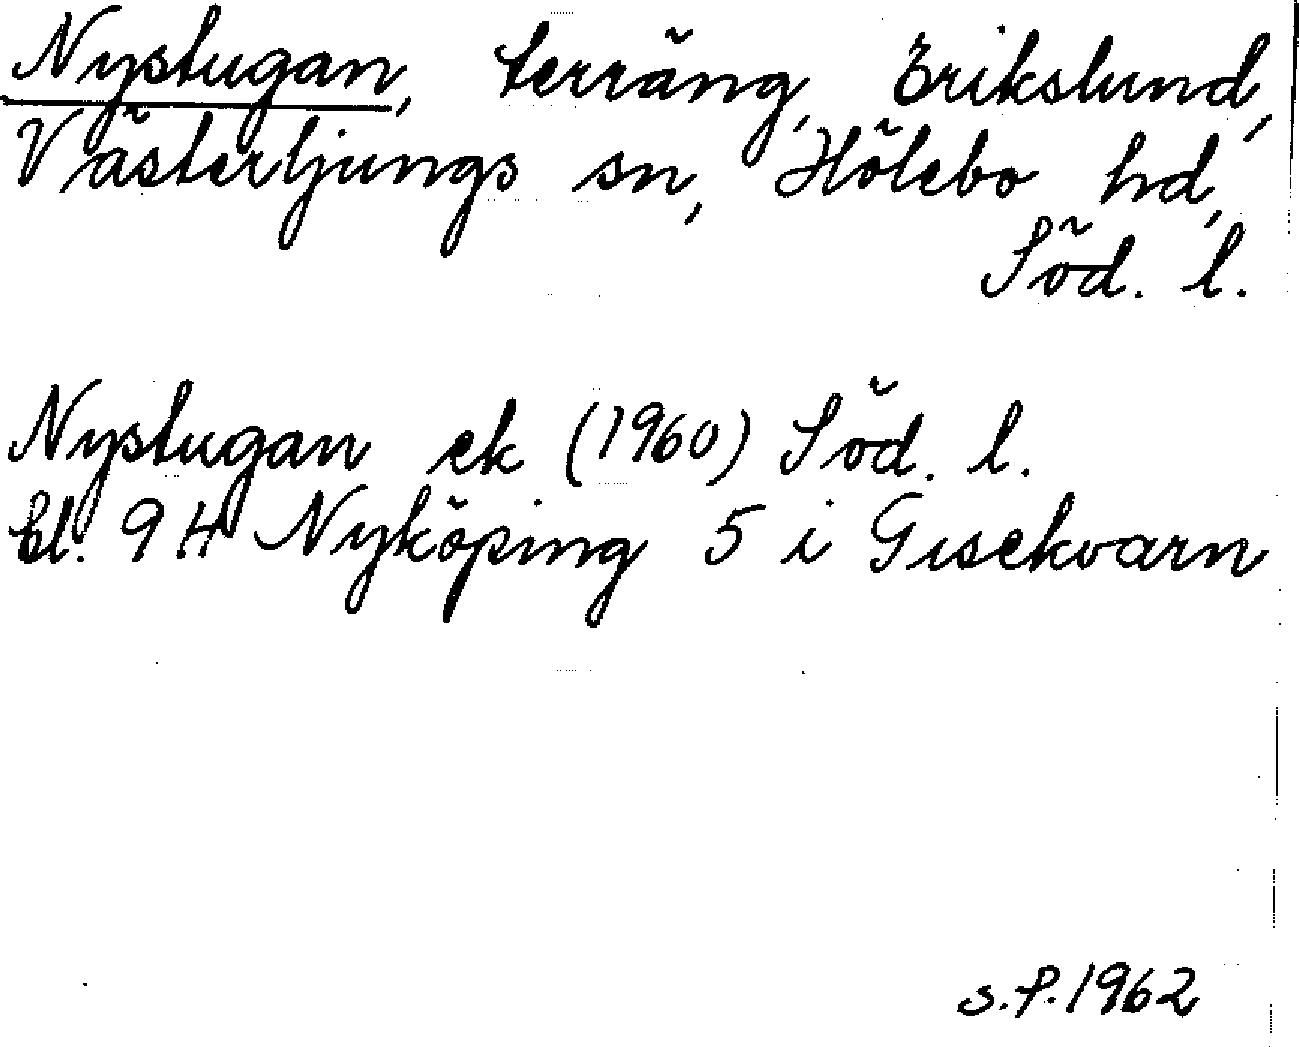 Nystugan, terräng, Erikslund,
Västerljungs sn, Hölebo hd,
Söd. l.
Nystugan ek (1960) Söd. l.
bl. 9 H Nyköping 5 i Gisekvarn
s.P. 1962